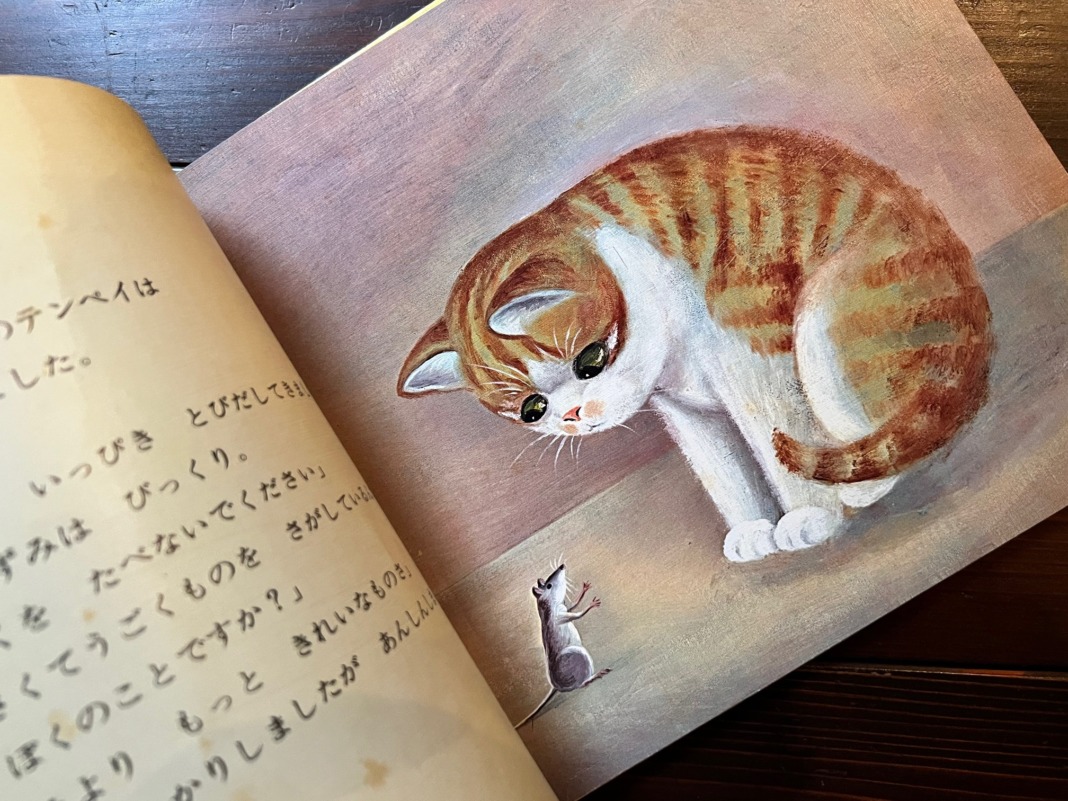 のテンペイは
した。
いっぴき とびだしてきま
ずみは びっくり。
を たべないでください」
さくてうごくものを さがしている
ぼくのことですか?」
より もっと きれいなものさ」
かりしましたが あんしんし